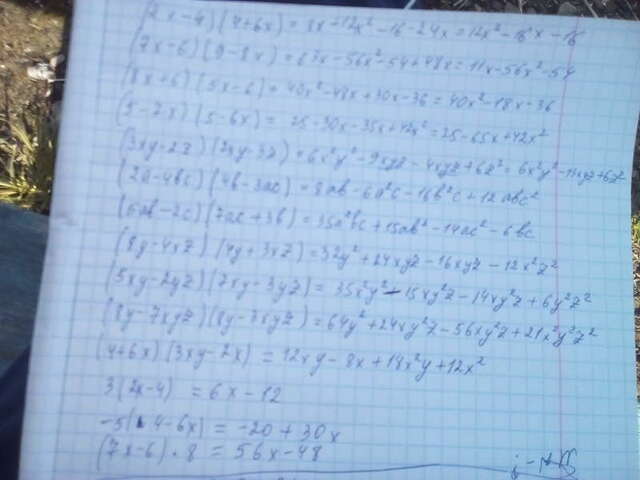 (2x-4)(4+6x) = 8x+12x²-16-24x = 12x²-16x-16
(7x-6)(9-8x) = 63x-56x²-54+48x = 111x-56x²-54
(8x+6)(5x-6) = 40x²-48x+30x-36 = 40x²-18x-36
(5-7x)(5-6x) = 25-30x-35x+42x² = 25-65x+42x²
(3xy-2z)(2xy-3z) = 6x²y²-9xyz-4xyz+6z² = 6x²y²-13xyz+6z²
(2a-4bc)(4b-3ac) = 8ab-6a²c-16b²c+12abc²
(5ab-2c)(7ac+3b) = 35a²bc+15ab²-14ac²-6bc
(8y-4xz)(4y+3xz) = 32y²+24xyz-16xyz-12x²z²
(5xy-2yz)(7xy-3yz) = 35x²y²-15xy²z-14xy²z+6y²z²
(8y-7xyz)(8y-3xyz) = 64y²+24xy²z-56xy²z+21x²y²z²
(4+6x)(3xy-2x) = 12xy-8x+18x²y+12x²
3(2x-4) = 6x-12
-5(4-6x) = -20+30x
(7x-6)·8 = 56x-48